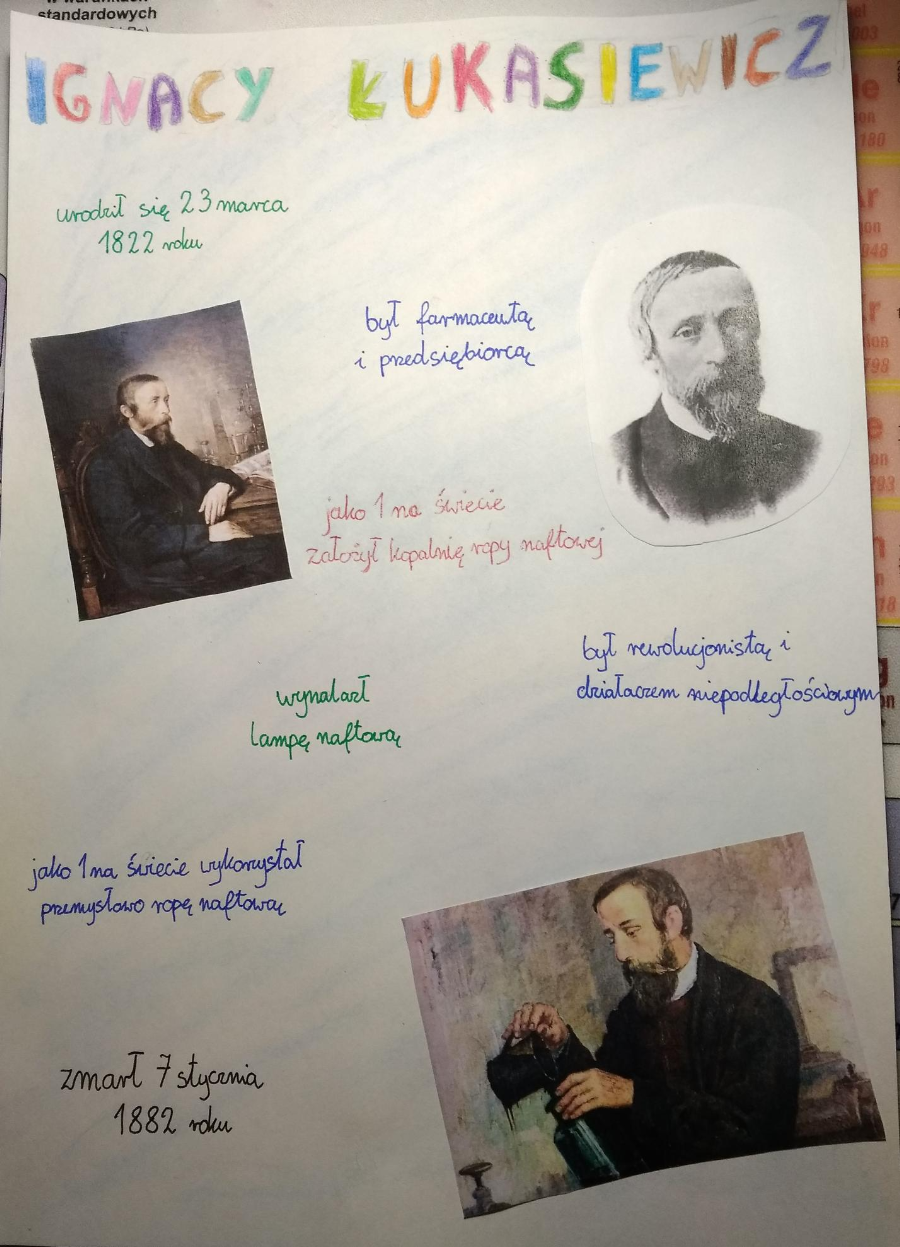 w warunkach
standardowych
IGNACY ŁUKASIEWICZ
urodził się 23 marca
1822 roku
był farmaceutą
i przedsiębiorcą
jako 1 na świecie
założył kopalnię ropy naftowej
był rewolucjonistą i
działaczem niepodległościowym
wynalazł
lampę naftową
jako 1 na świecie wykorzystał
przemysłowo ropę naftową
zmarł 7 stycznia
1882 roku